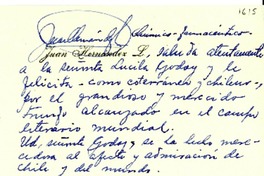 1615
Juan Hernández L. Químico-farmacéutico
Juan Hernández L. saluda atentamente
a la señorita Lucila Godoy y le
felicita - como coterránea y chilena,
por el grandioso y merecido
triunfo alcanzado en el campo
literario mundial.
Ud, señorita Godoy, se ha hecho mere-
cedora al afecto y admiración de
Chile y del mundo.